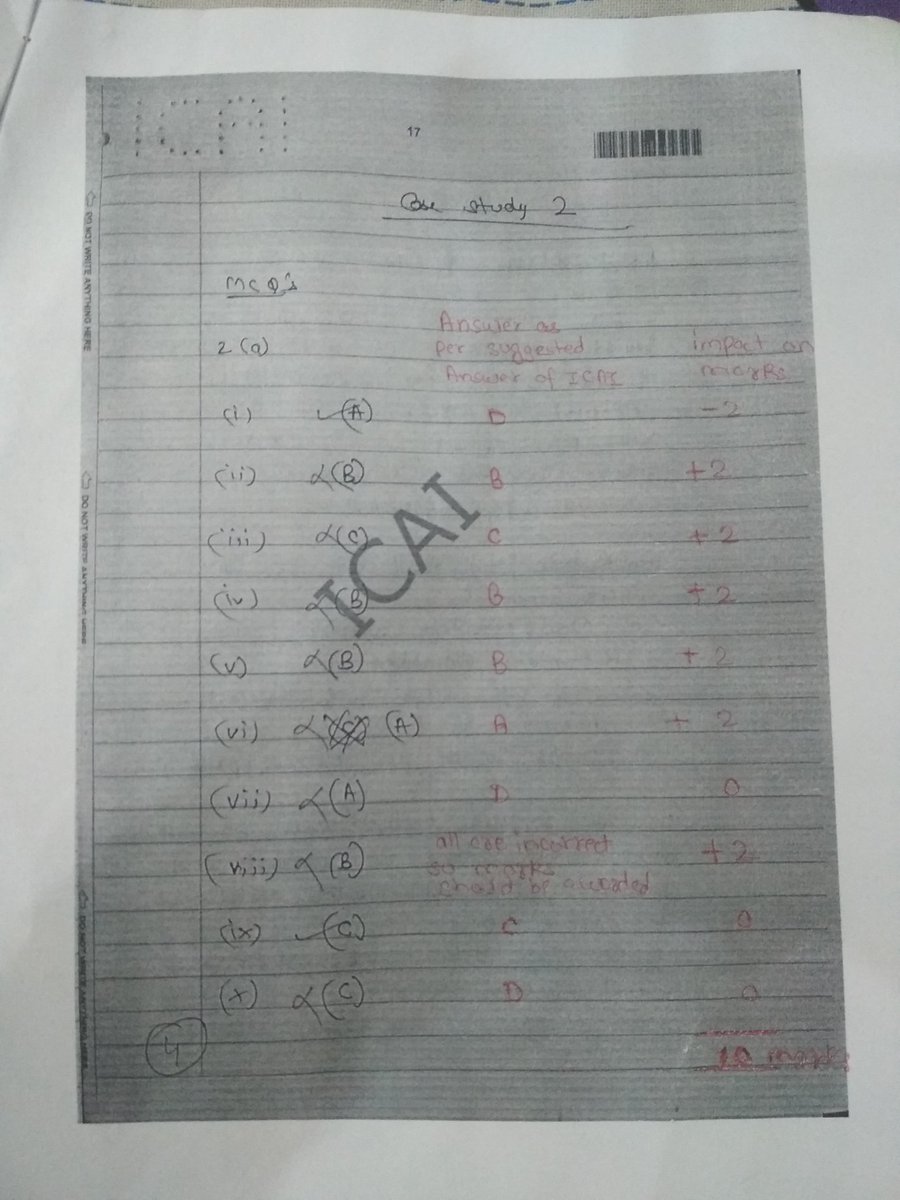 ICAI
17
Case study 2
MCQ's
2 (a) Answer as per suggested Answer of ICAI impact on marks
(i) (A) D - 2
(ii) (B) B + 2
(iii) (C) C + 2
(iv) (B) B + 2
(v) (B) B + 2
(vi) (A) A + 2
(vii) (A) D 0
(viii) (B) all are incorrect so marks should be awarded + 2
(ix) (C) C 0
(x) (C) D 0
4
10 marks
ICAI
DO NOT WRITE ANYTHING HERE
DO NOT WRITE ANYTHING HERE
DO NOT WRITE ANYTHING HERE